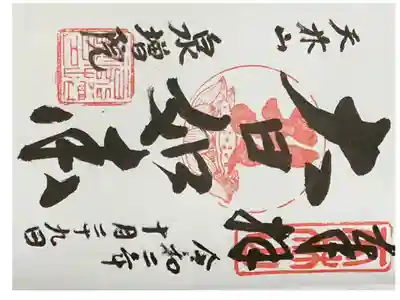 奉拝
令和二年
十月二十九日
大日如来
天林山
泉増院